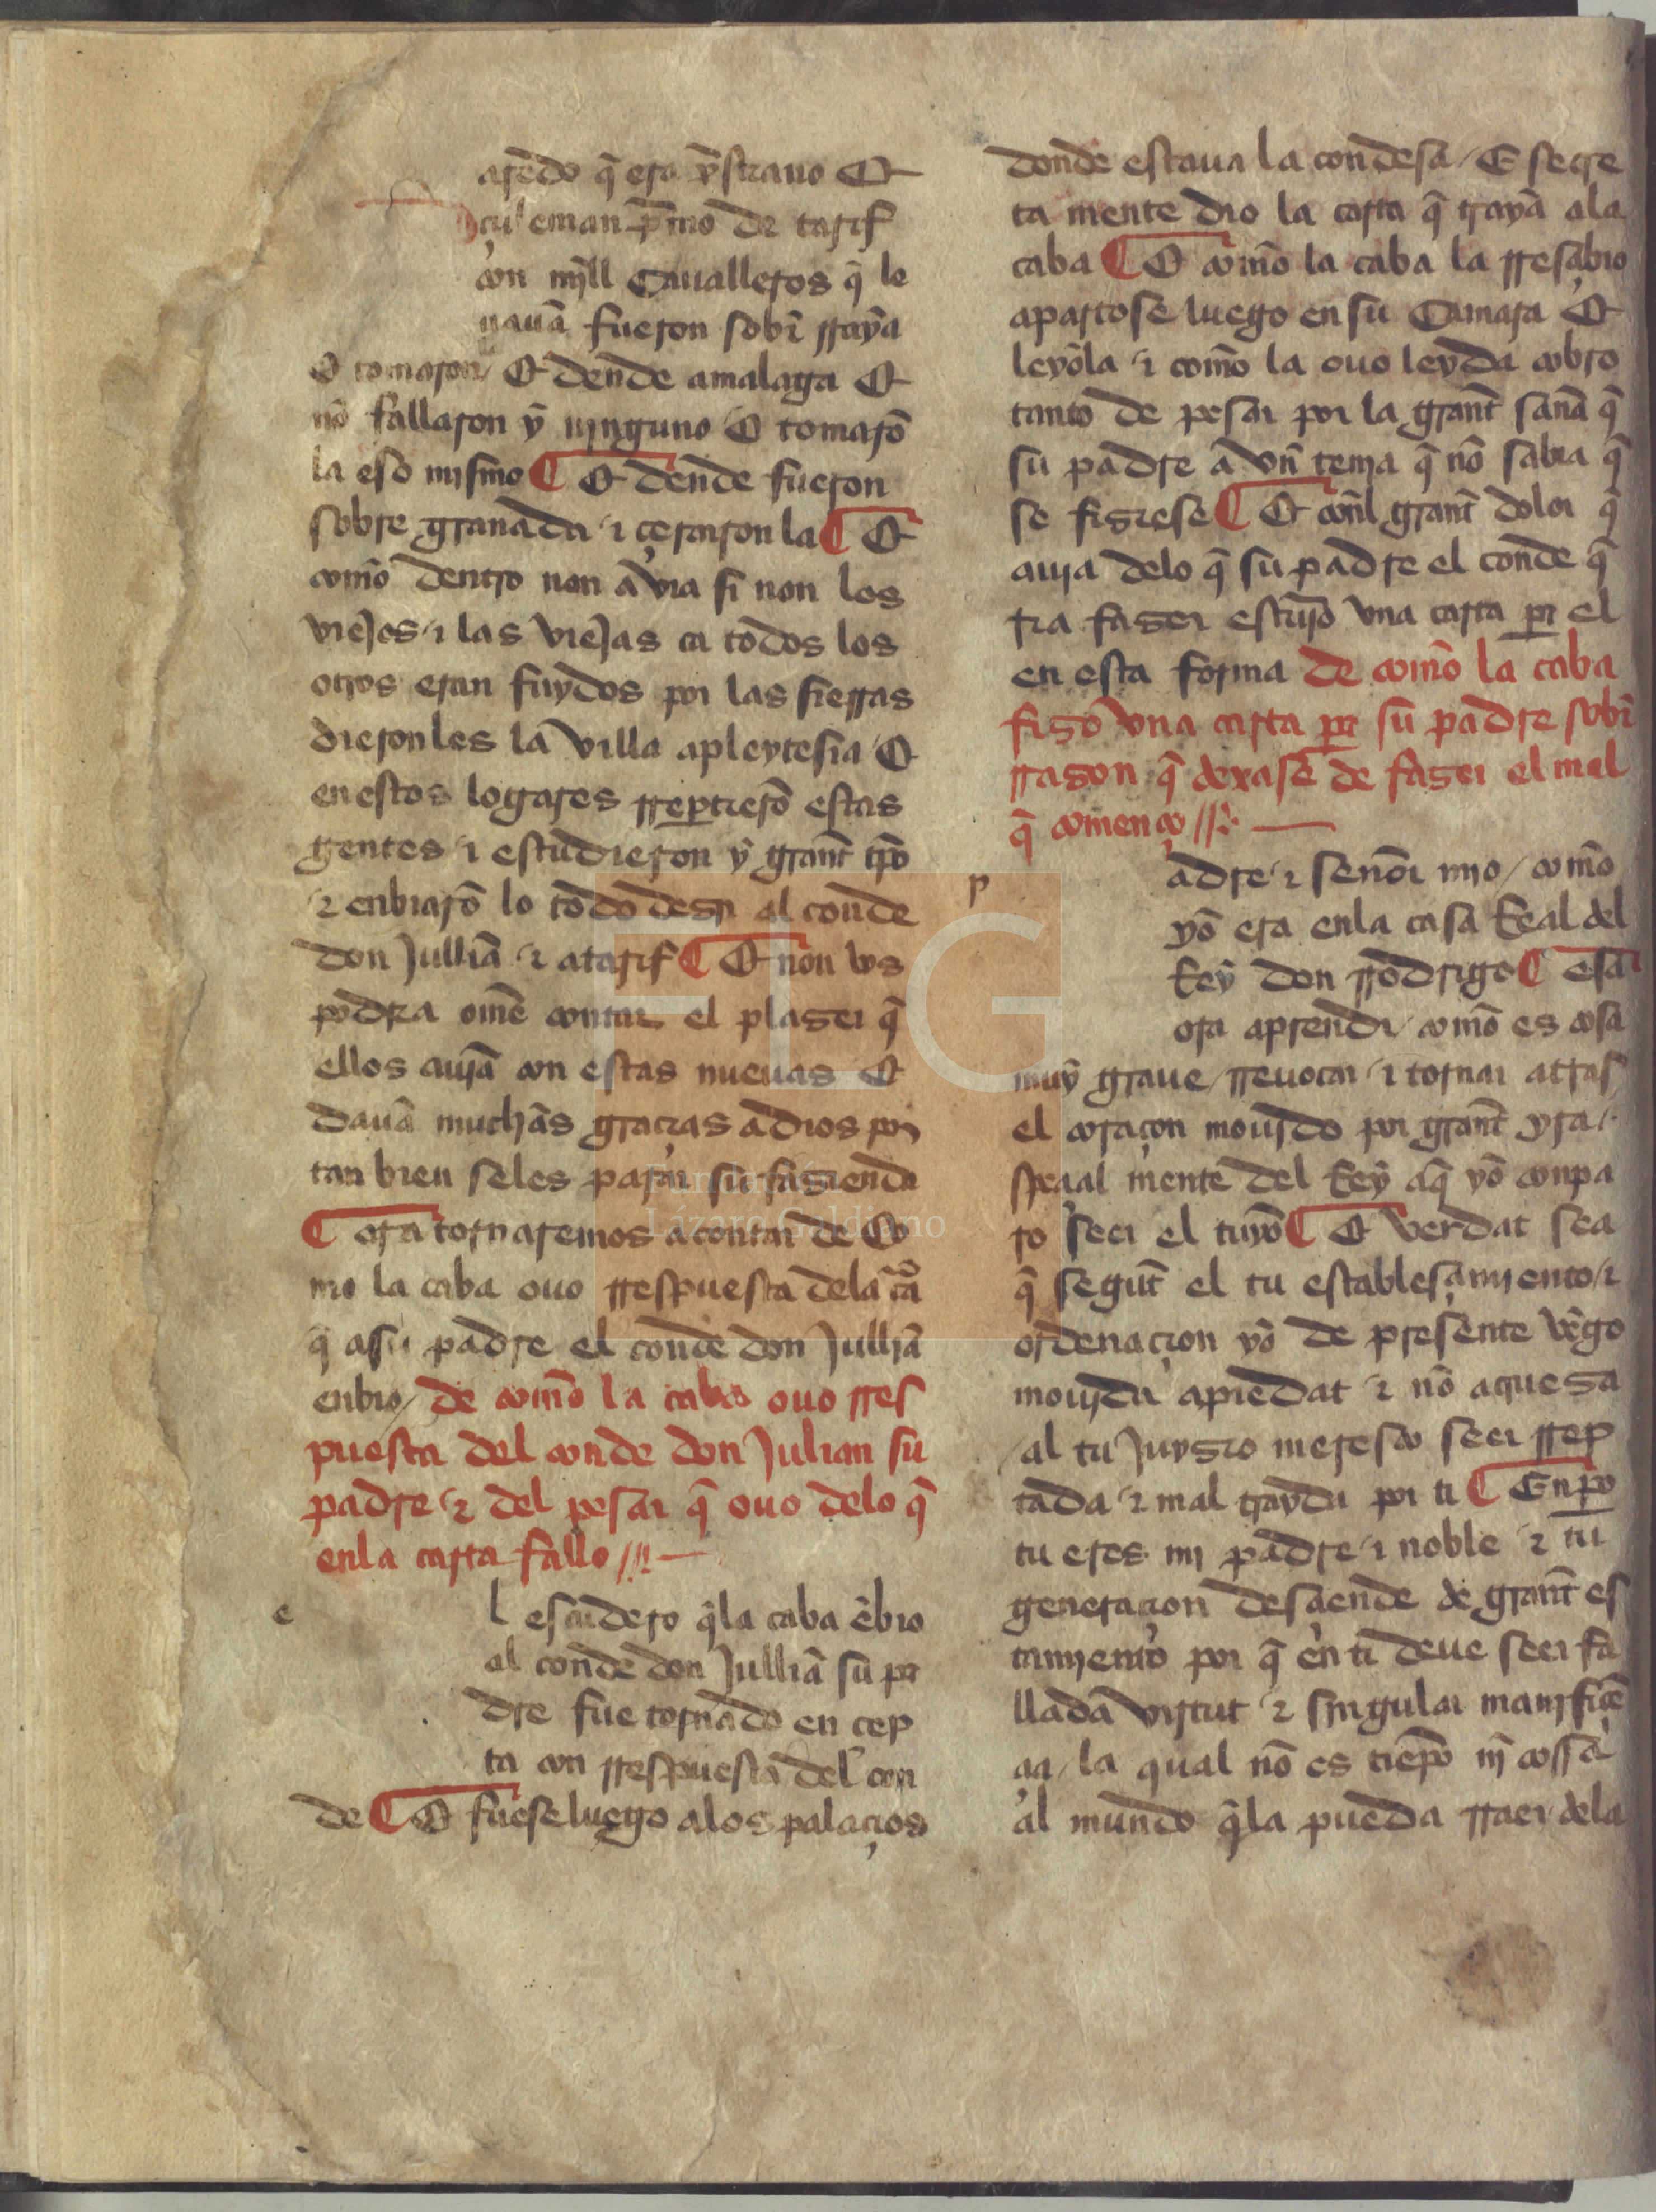 afedo q̃ era xp̃strano Et
culeman p̃mo de tarif
con mjll Caualleros q̃ le
uauã fueron sobr̃ rrayã
E tomaron Et dende amalaga Et
nõ fallaron ỹ njnguno E tomarõ
la eso mismo ¶ Et dende fueron
sobre granada ⁊ çercaron la ¶ Et
com̃o dentro non avia si non los
viejos ⁊ las viejas ca todos los
otros eran fuydos por las sierras
dieronles la villa apleytesia E
en estos logares rrepartierõ estas
gentes ⁊ estudieron ỹ grant tp̃o
⁊ enbiarõ lo todo desir al conde
don Julliã ⁊ atarif ¶ Et non vos
podria om̃e contar el plaser q̃
ellos aujã con estas nueuas Et
dauã muchas graçias adios por
tan bien seles parar su fasienda
¶ ora tornaremos acontar de Co
mo la caba ouo rrespuesta dela cã
q̃ asu padre el conde don Julliã
enbio / de com̃o la caba ouo rres
puesta del conde don Julian su
padre ⁊ del pesar q̃ ouo delo q̃
enla carta fallo
e l escudero q̃la caba ẽbio
al conde don Julliã su pa
dre fue tornado en cep
ta con rrespuesta del con
de ¶ E fuese luego alos palaçios
donde estaua la condesa / E secre
ta mente dio la carta q̃ traya ala
caba ¶ E com̃o la caba la rresçibio
apartose luego en su Camara Et
leyola ⁊ com̃o la ouo leyda cobro
tanto de pesar por la grant saña q̃
su padre avn tenia q̃ nõ sabia q̃
se fisiese ¶ Et conl grant dolor q̃
auja delo q̃ su padre el conde q̃
ria faser escriujo vna carta par el
en esta forma de com̃o la caba
fiso vna carta par su padre sobr̃
rrason q̃ dexase de faser el mal
q̃ començo
p adre ⁊ señor mjo / com̃o
yo era enla casa Real del
Rey don rrodrigo ¶ esa
ora aprendi / com̃o es cosa
muy graue / rreuocar ⁊ tornar atras
el coraçon moujdo por grant yra /
speçial mente del Rey aq̃ yo conpa
ro seer el tuyo ¶ Et verdat sea
q̃ segũt el tu establesçimjento / ⁊
ordenaçion yo de presente vẽgo
moujda apiedat ⁊ nõ aquesa
al tu juysio meresco seer rrep
tada ⁊ mal trayda por ti ¶ Enpo
tu eres mj padre ⁊ noble ⁊ tu
generaçion desçiende de grant es
tamjento por q̃ en ti deue seer fa
llada virtut ⁊ singular manifiçẽ
çia / la qual nõ es tienpo nj cossa
al mundo q̃la pueda rraer dela